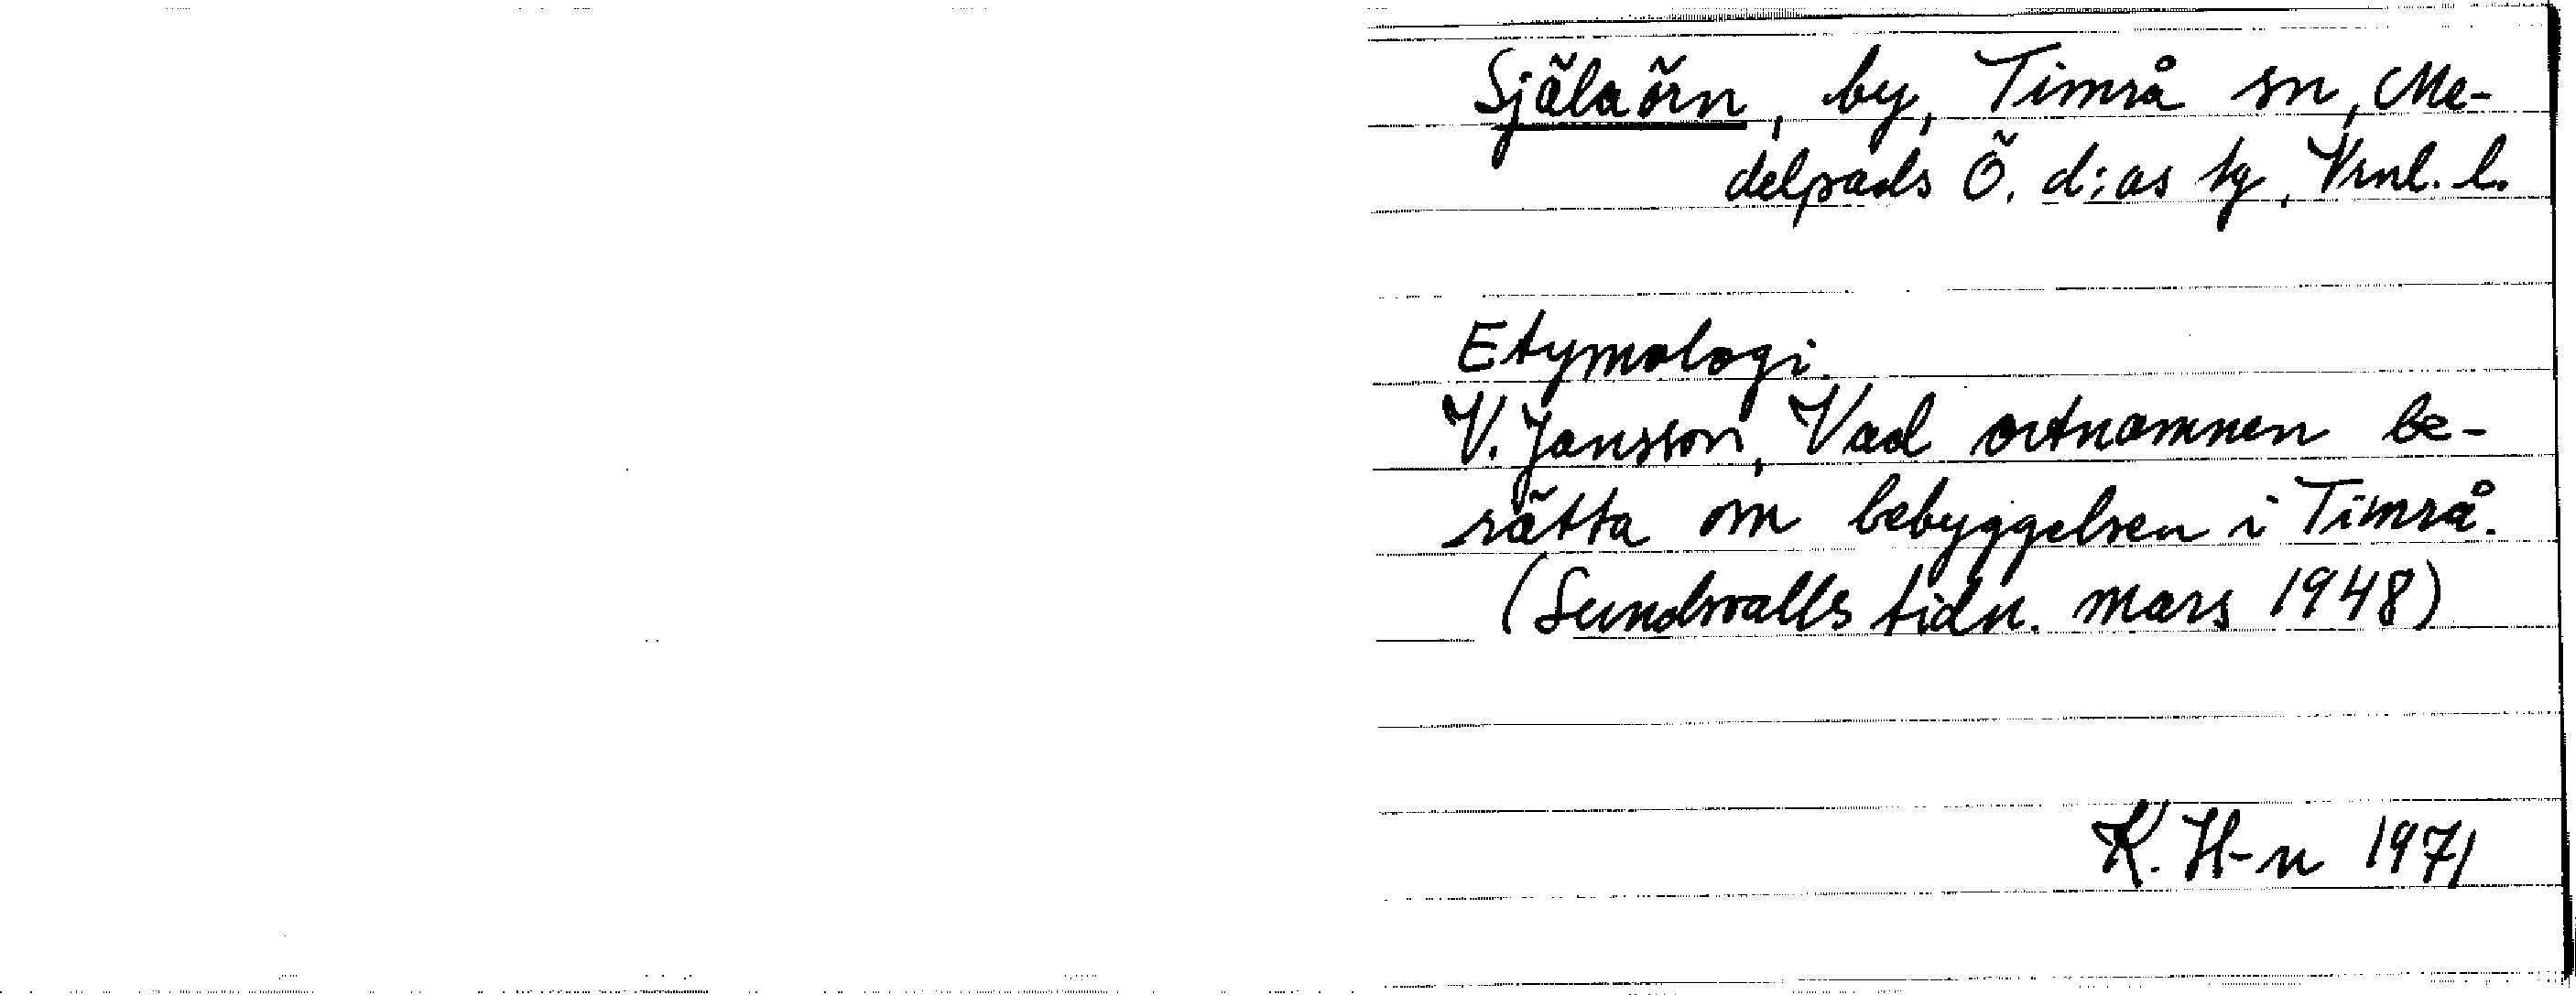 Själaörn, by, Timrå sn, Me-
delpads Ö. d:as tg, Vrnl. l.
Etymologi.
V. Jansson, Vad ortnamnen be-
rätta om bebyggelsen i Timrå.
(Sundsvalls tidn. mars 1948)
K. H-n 1971